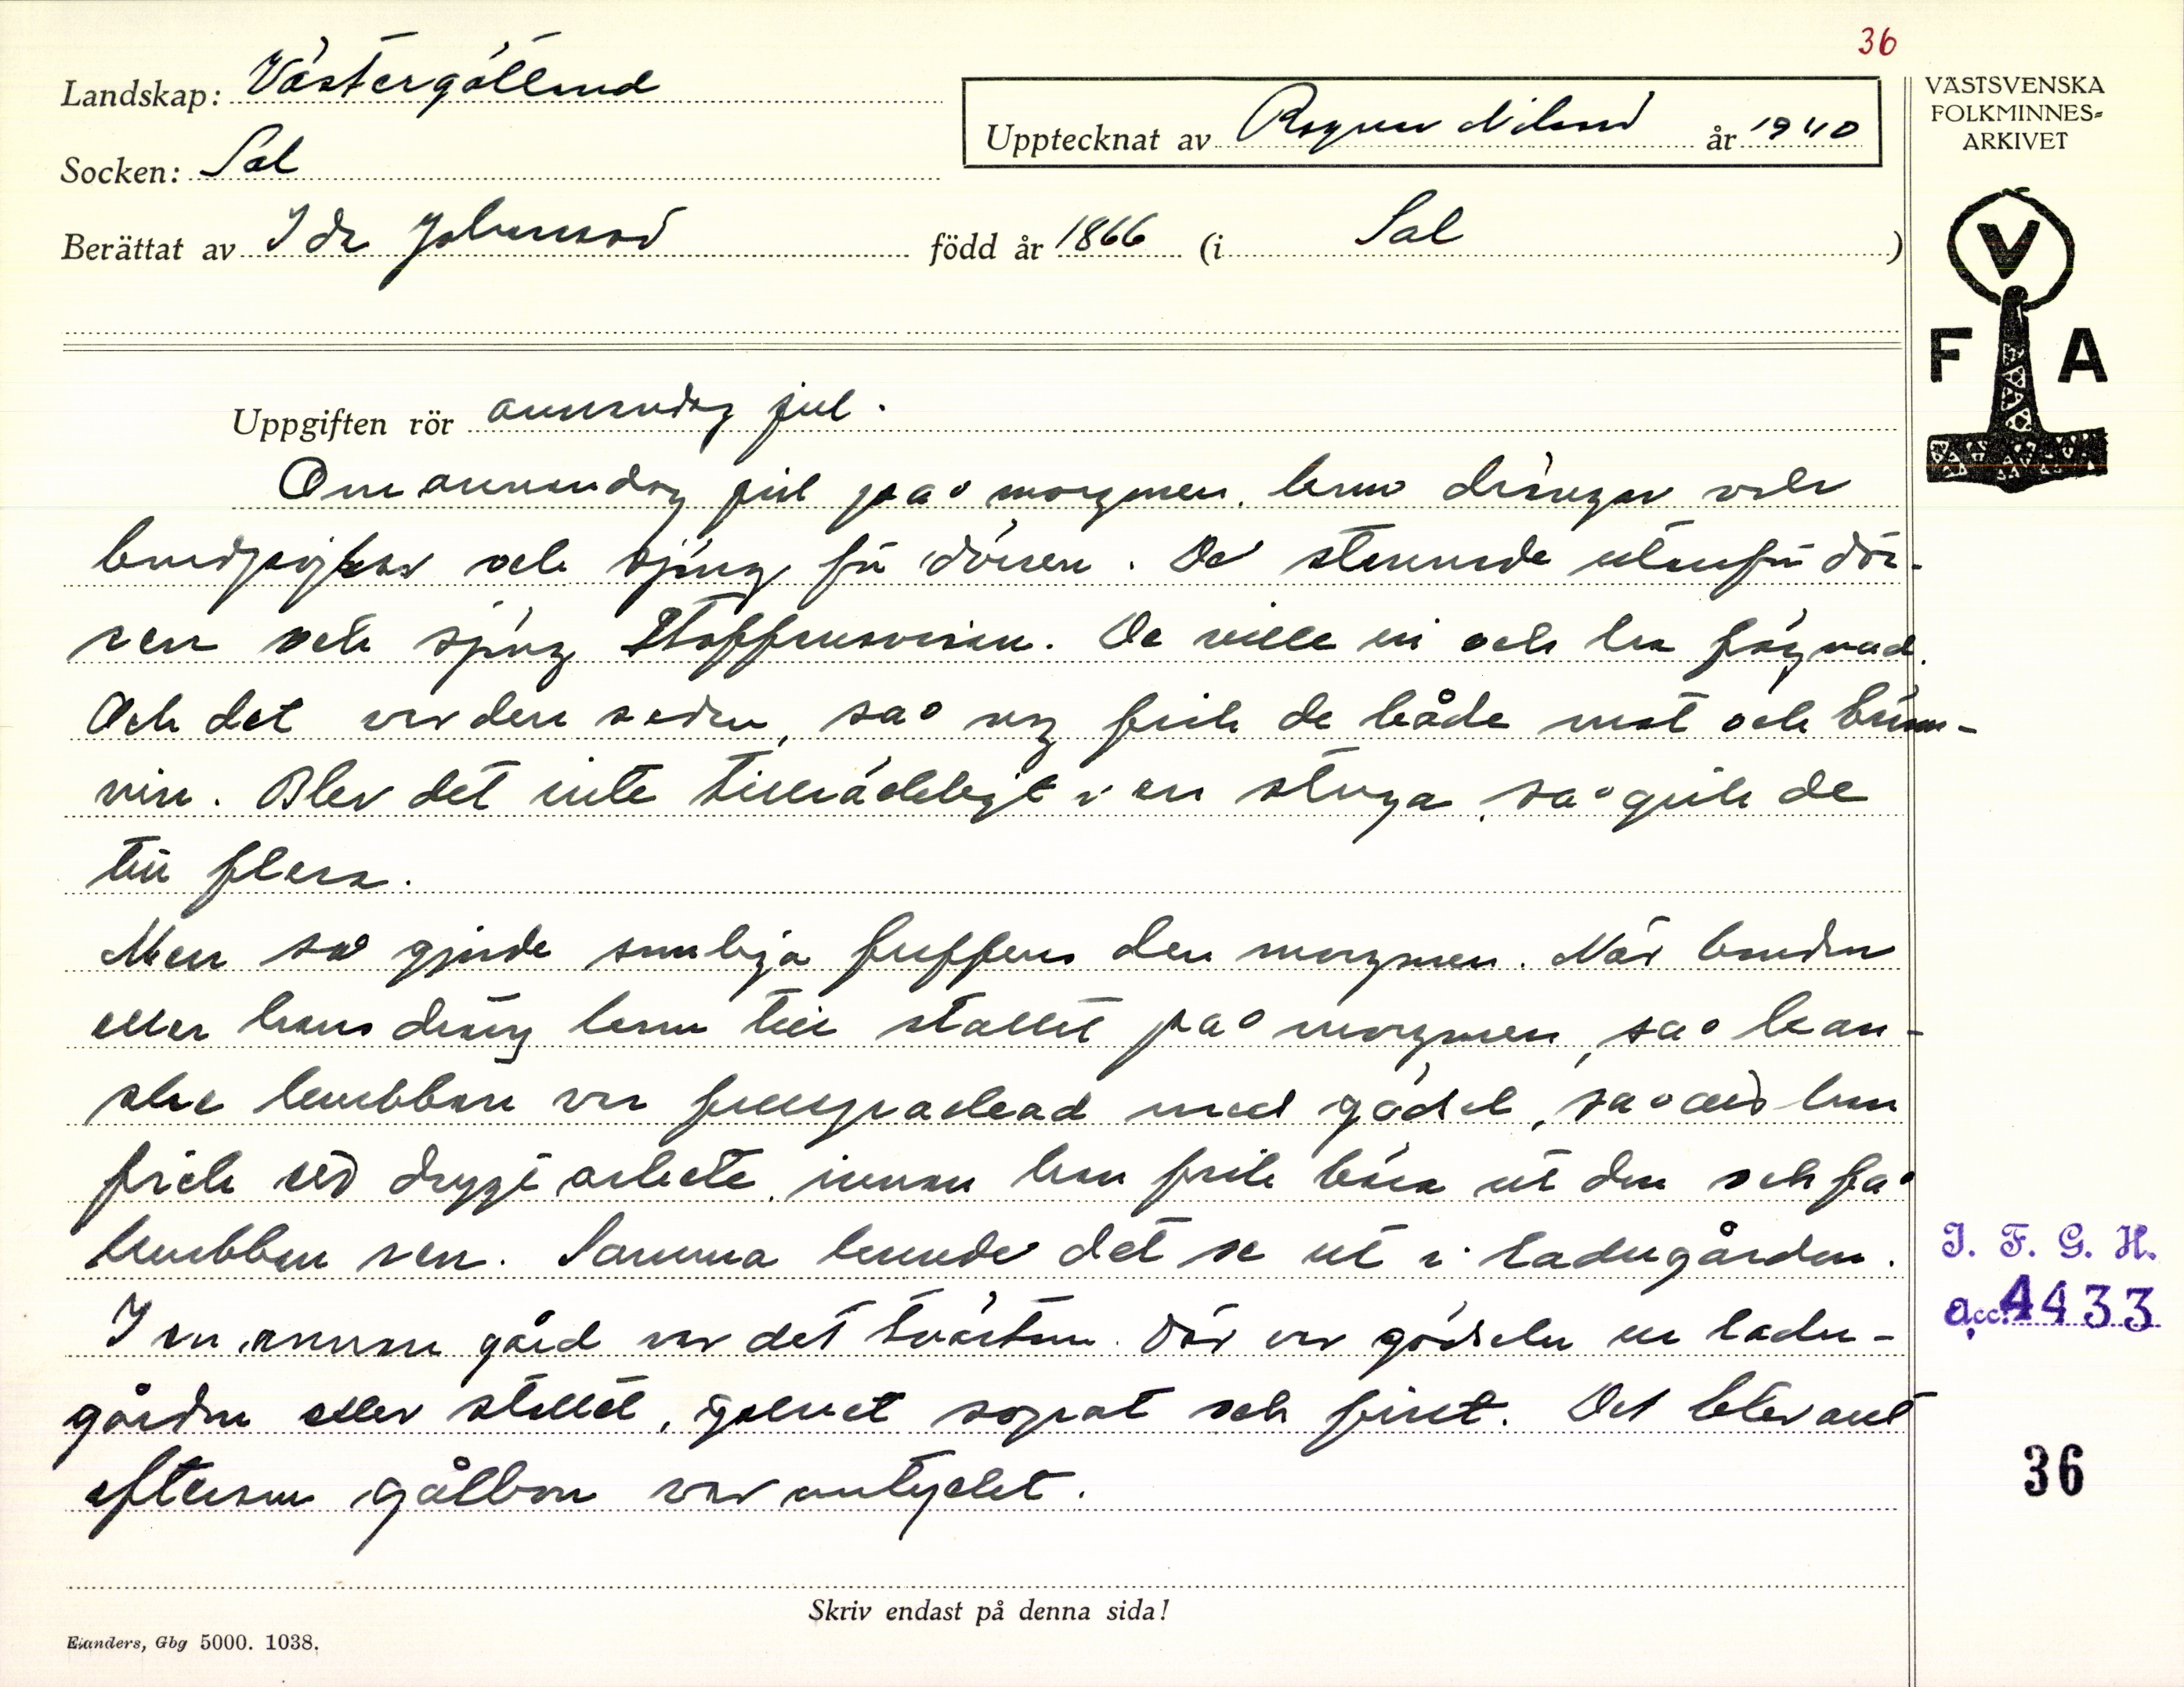 36
Landskap: Västergötland
Upptecknat av Ragnar Nilsson år 1940
VÄSTSVENSKA
FOLKMINNES=
ARKIVET
Socken: Sal
Berättat av Ida Johansson född år 1866 (i Sal )
V
F A
Uppgiften rör annandag jul.
Om annandag jul på morgonen, kom drängar och
bondpojkar och sjöng för dörren. De stannade utanför dör-
ren och sjöng Staffansvisan. De ville in och ha fägnad.
Och det var den seden, så nog fick de både mat och bränn-
vin. Blev det inte tillräckligt i en stuga, så gick de
till flera.
Men så gjorde somliga fuffens den morgonen. När bonden
eller hans dräng kom till stallet på morgonen, så kan-
ske krubban var fullpackad med gödsel, så att han
fick ett drygt arbete, innan han fick bära ut den och få
krubban ren. Samma kunde det se ut i ladugården.
I en annan gård var det tvärtom. Där var gödseln ur ladu-
gården eller stallet, golvet sopat och fint. Det blev allt
eftersom gålbon var omtyckt.
I. F. G. H.
Acc. 4433
36
Skriv endast på denna sida!
Elanders, Gbg 5000. 1038.